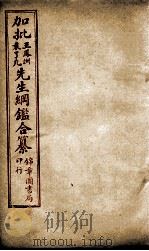 加批王鳳洲
袁了凡先生綱鑑合纂
錦章圖書局
印行